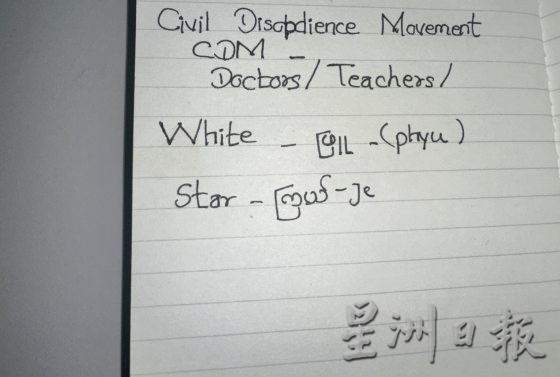 Civil Disopdience Movement
CDM –
Doctors/ Teachers/
White – ဖြူ -(phyu)
Star – ကြယ် - Je
星洲日報